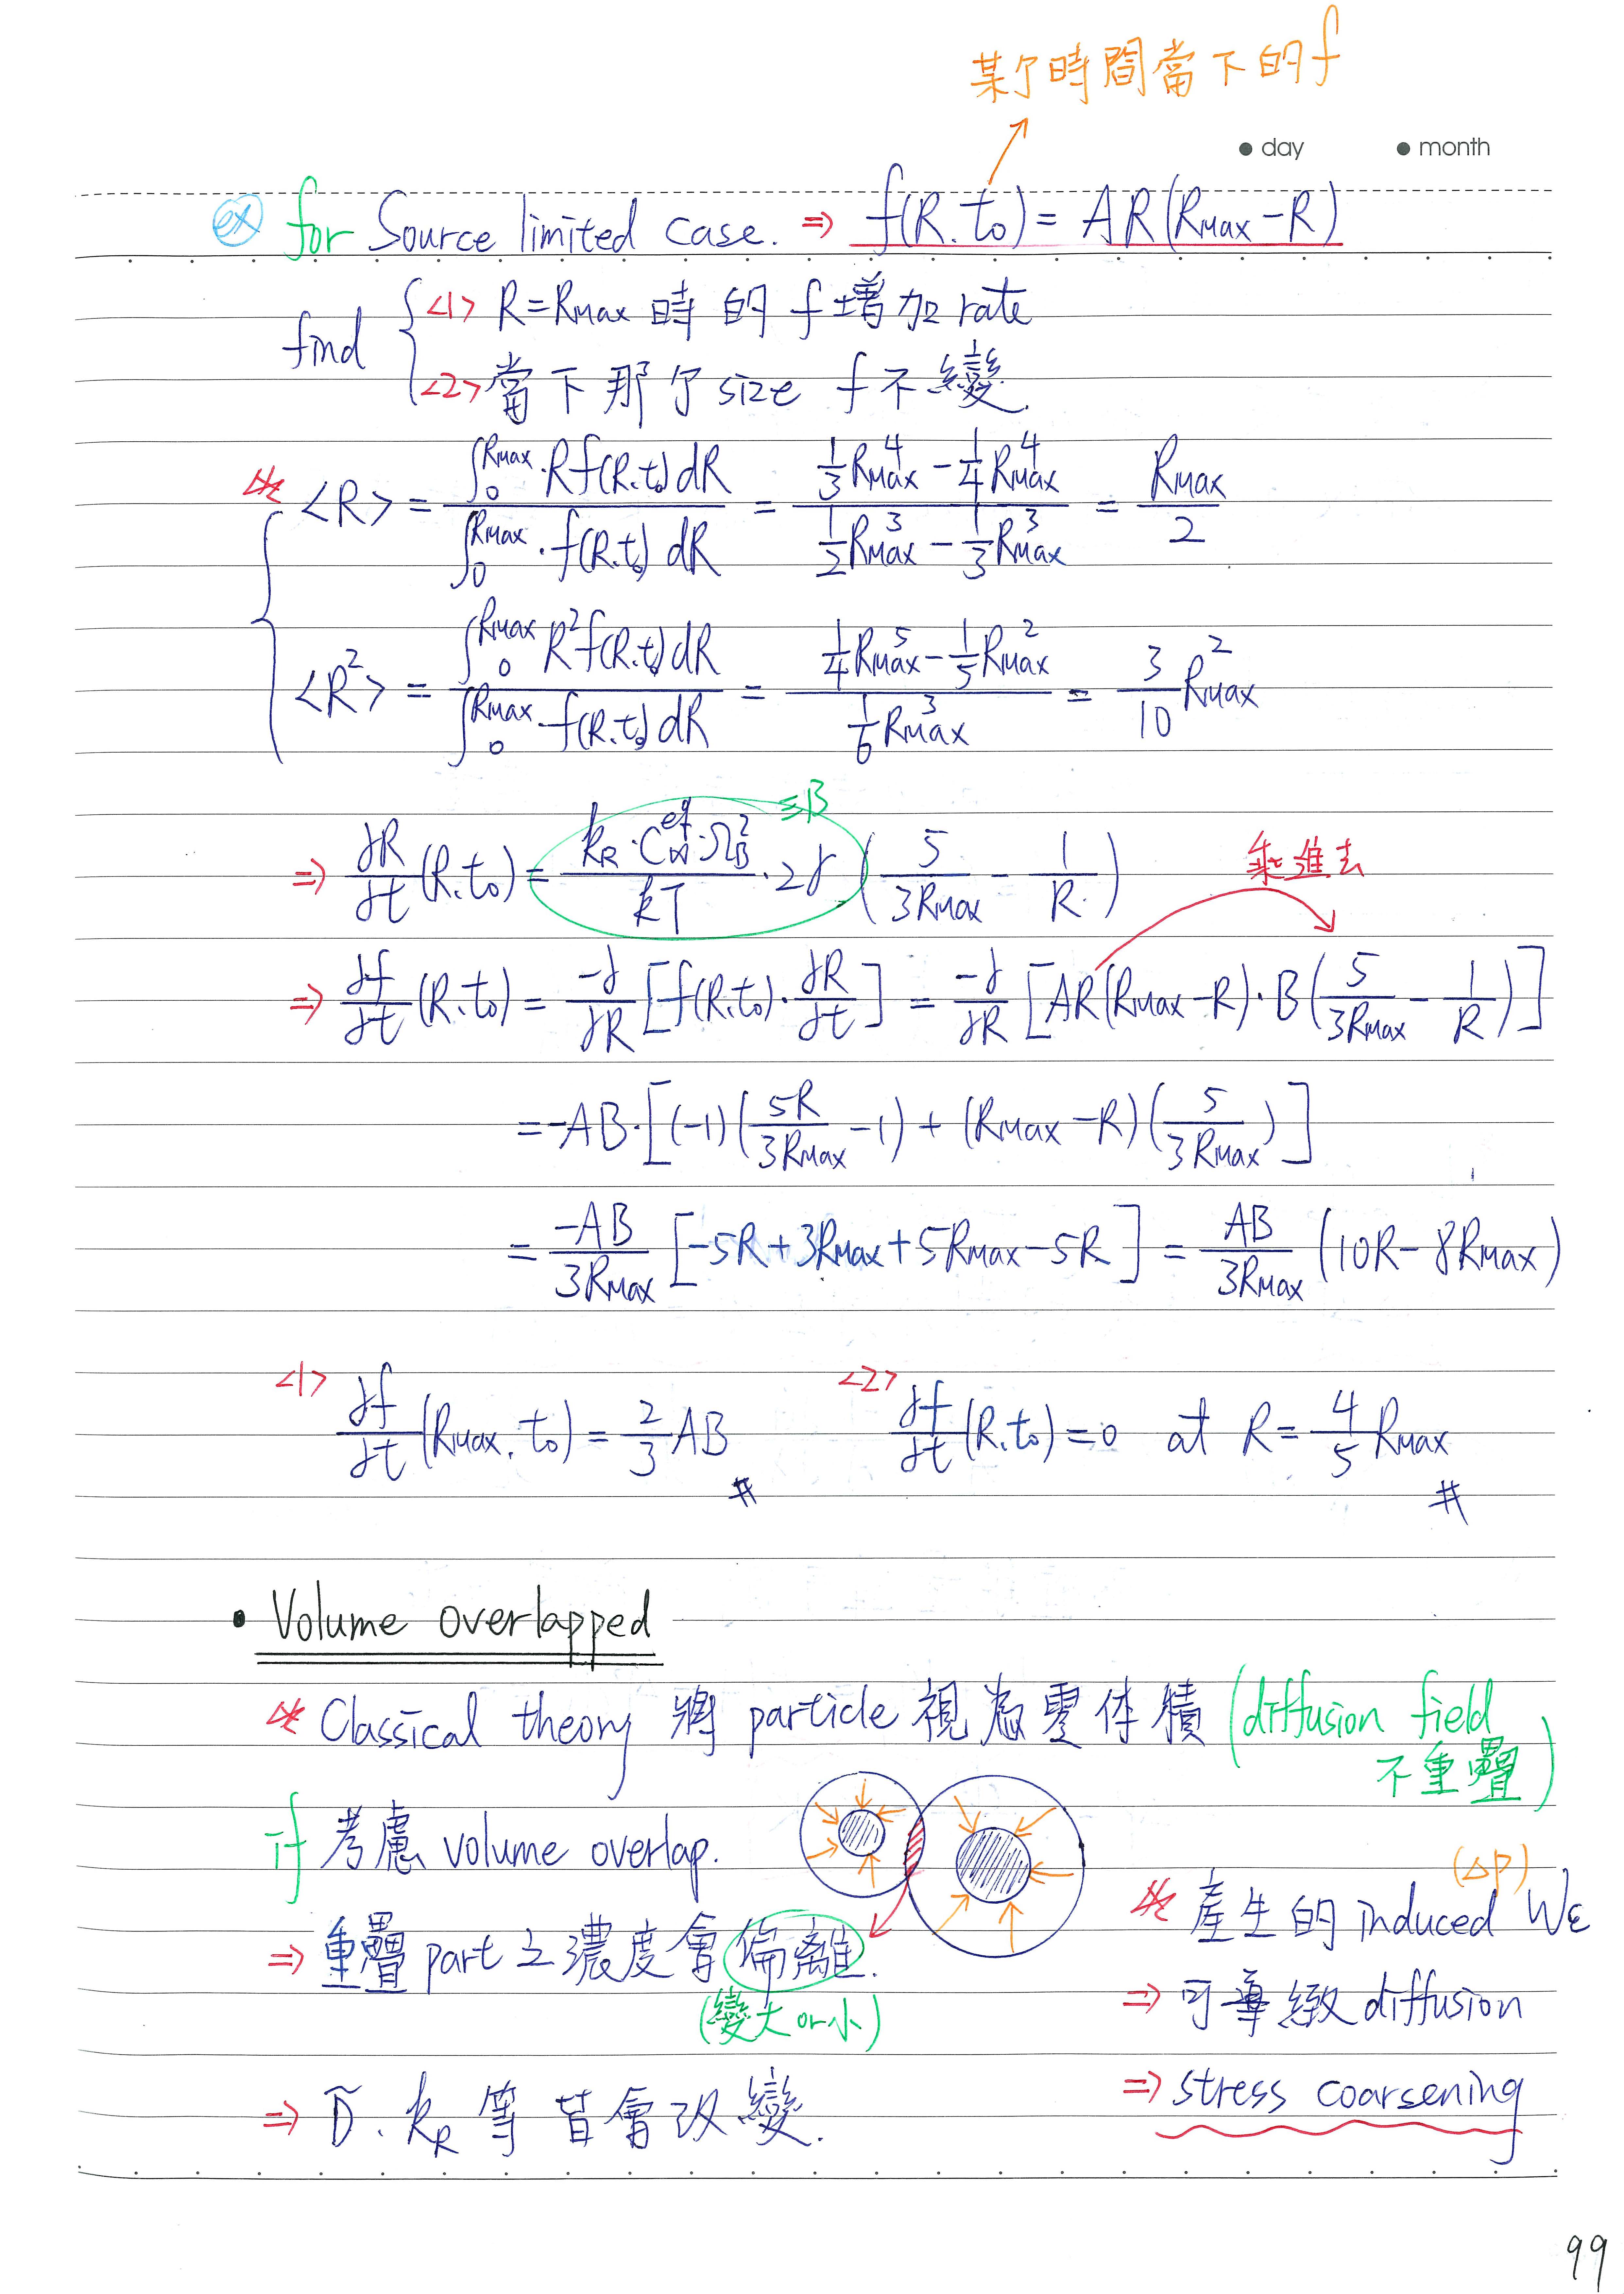 某个時間當下的f
• day • month
ex for Source limited case. ⇒ f(R.t₀) = AR(RMax-R)
find <1> R=RMax 時的 f增加rate
<2> 當下那个size f不變.
※ <R> = ∫₀^RMax·Rf(R.t₀)dR / ∫₀^RMax·f(R.t₀)dR = (1/3 RMax⁴ - 1/4 RMax⁴) / (1/2 RMax³ - 1/3 RMax³) = RMax/2
<R²> = ∫₀^RMax R²f(R.t₀)dR / ∫₀^RMax·f(R.t₀)dR = (1/4 RMax⁵ - 1/5 RMax²) / (1/6 RMax³) = 3/10 RMax²
≡B
⇒ ∂R/∂t (R.t₀) = (kR·C∞^eq·ΩB² / kT)·2γ (5/3RMax - 1/R) 乘進去
⇒ ∂f/∂t (R.t₀) = -∂/∂R [f(R.t₀)·∂R/∂t] = -∂/∂R [AR(RMax-R)·B(5/3RMax - 1/R)]
= -AB·[(-1)(5R/3RMax - 1) + (RMax-R)(5/3RMax)]
= -AB/3RMax [-5R+3RMax+5RMax-5R] = AB/3RMax (10R-8RMax)
<1> ∂f/∂t (RMax.t₀) = 2/3 AB # <2> ∂f/∂t (R.t₀)=0 at R= 4/5 RMax #
• Volume overlapped
※ Classical theory 將 particle 視為零体積 (diffusion field
不重疊)
if 考慮 volume overlap.
⇒ 重疊part之濃度會偏離.
(變大or小)
⇒ D̄. kR 等皆會改變.
(ΔP)
※ 產生的 induced Wε
⇒ 可導致diffusion
⇒ stress coarsening
99